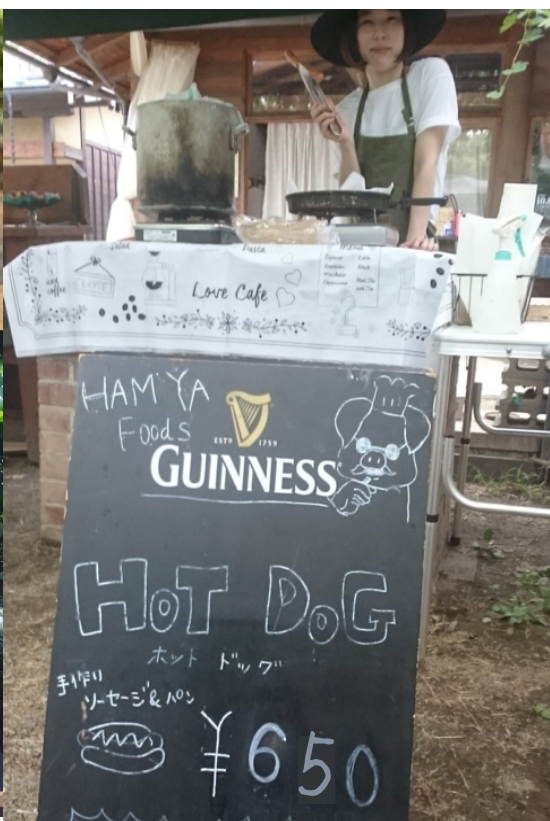 Love Cafe
HAM YA
Foods
ESTD 1759
GUINNESS
HOT DOG
ホット ドッグ
手作り
ソーセージ & パン
¥650